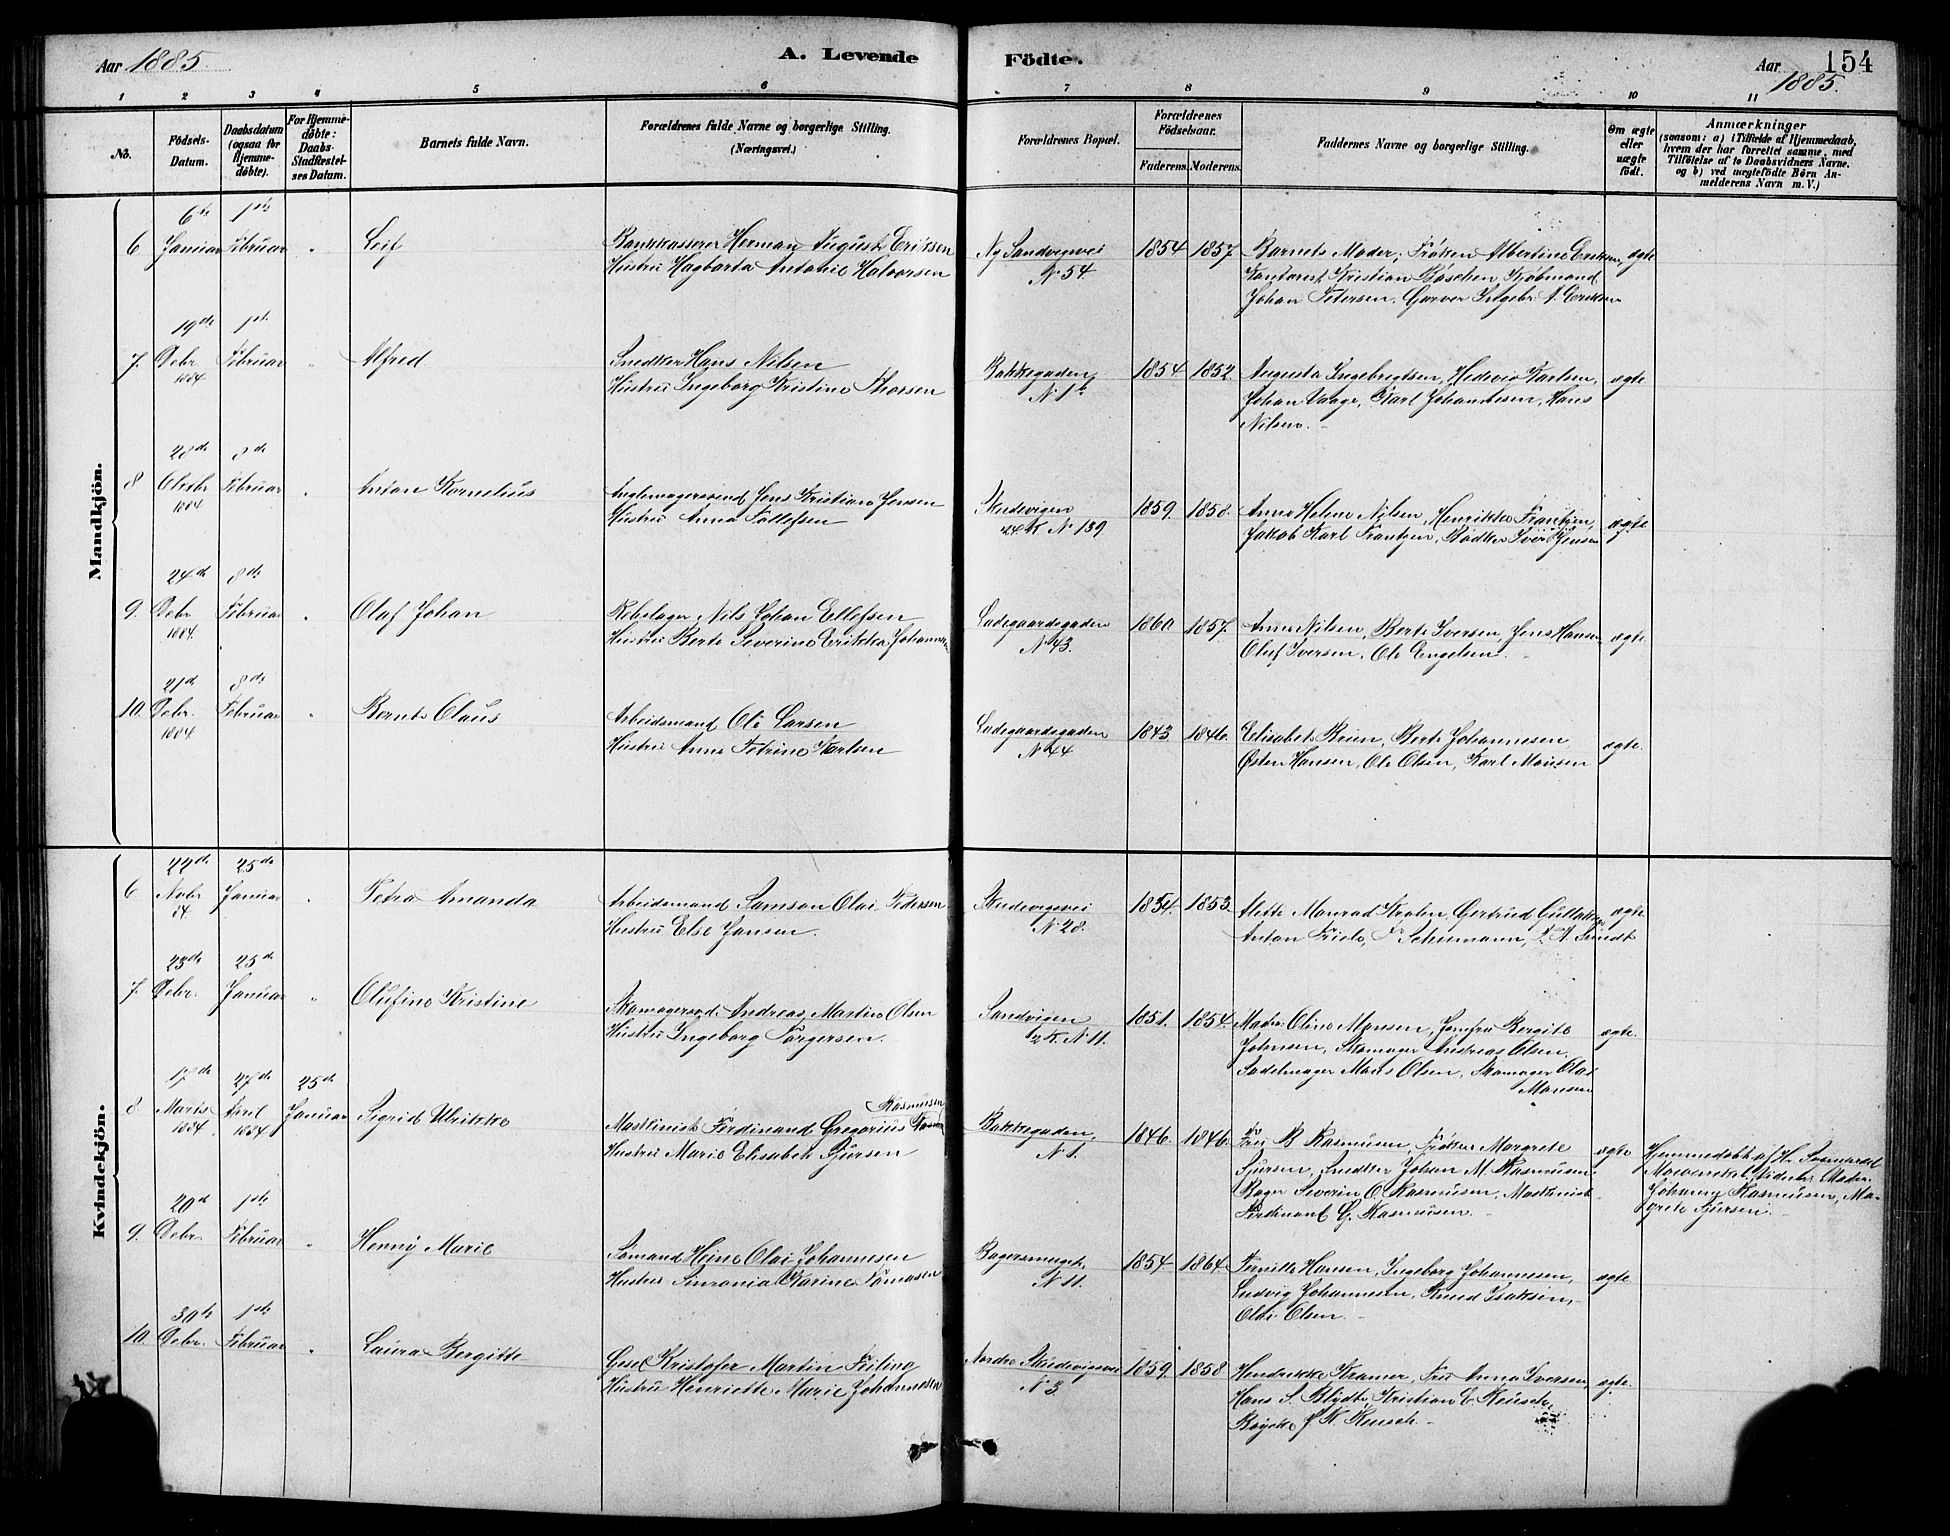 Aar 1885
A. Levende
Födte.
154
Aar 1885.
1 2 3 4 5 6 7 8 9 10 11
No.
Födsels-
Datum.
Daabsdatum
(ogsaa for
Hjemme-
döbte).
For Hjemme-
döbte:
Daabs-
Stadfæstel-
ses Datum.
Barnets fulde Navn.
Forældrenes fulde Navne og borgerlige Stilling.
(Næringsvei.)
Forældrenes Bopæl.
Forældrenes
Födselsaar.
Faderens. Moderens.
Faddernes Navne og borgerlige Stilling.
Om ægte
eller
uægte
födt.
Anmærkninger
(saasom: a) i Tilfælde af Hjemmedaab,
hvem der har forrettet samme, med
Tilföielse af to Daabsvidners Navne.
og b) ved uægtefödte Börn An-
melderens Navn m. V.)
Mandkjön.
6 6te Januar 1ste Februar " Leif
Bankkasserer Herman August Eriksen
Hustru Hagbarta Antonie Halvorsen
Ny Sandvenvei
N 54
1854 1857.
Barnets Moder, Frøken Albertine Eriksen,
Kristian Bøschen Kjøbmand
Johan Petersen, Garver Ingebr. A. Eriksen
ægte
7. 19de Debr. 1884 1ste Februar " Alfred
Snedker Hans Nilsen
Hustru Ingeborg Kristine Thorsen
Bakkegaden,
N 1b
1854 1852.
Augusta Ingebrigtsen, Hedevig Karlsen,
Johan Vaage, Karl Johannesen, Hans
Nilsen.
ægte
8 28de Oktbr 1884 8de Februar " Anton Kornelius
Jens Kristian Jensen
Hustru Anna Tollefsen
Skudevigen
24 K. N 139
1859. 1858.
Anna Helene Nilsen, Henrikke Frantzen,
Jakob Karl Frantzen, Bødker Iver Jensen
ægte
9. 24de Debr. 1884. 8de Februar " Olaf Johan
Rebslager Nils Johan Ellefsen
Hustru Berte Severine Erikka Johannesen
Ladegaardsgaden
N 43.
1860. 1857.
Anna Nilsen, Berte Iversen, Jens Hansen,
Oluf Iversen, Ole Engelsen.
ægte
10. 21de Debr. 1884. 8de Februar " Bernt Olaus
Arbeidsmand Ole Larsen
Hustru Anne Petrine Karlsen
Ladegaardsgaden
N 44
1843 1846.
Elisabet Brun, Berte Johannesen
Østen Hansen, Ole Olsen, Karl Monsen
ægte.
Kvindekjön.
6 22de Nobr 84 25de Januar " Petra Amanda
Arbeidsmand Samson Olai Pedersen
Hustru Else Jansen.
Skudevigsvei
N 28.
1834. 1853
Alette Monrad Krohn, Gertrud Gullaksen
Anton Friele, Fr Schumann, A. Sundt
ægte
7. 23de Debr. 25de Januar " Olufine Kristine
Skomagersvd. Andreas Martin Olsen
Hustru Ingeborg Torgersen.
Sandvigen
2 K. N 11.
1851. 1854.
Madm. Oline Monsen, Jomfru Bergite
Johnsen, Skomager Andreas Olsen,
Sadelmager Mons Olsen, Skomager Olai
Monsen
ægte.
8 17de Marts 1884 27de April 1884 25de Januar Sigrid Ulrikke
Rasmussen
Maskinist Ferdinand Gregorius
Hustru Marie Elisabeth Sjursen
Bakkegaden,
N 1.
1846. 1846.
Fru B Rasmussen, Frøken Margrete
Sjursen, Snedker Johan M. Rasmussen
Bager Severin O. Rasmussen, Maskinist
Ferdinant G. Rasmussen.
ægte
Hjemmedøbt af H.
Vidner: Madm.
Johanne Rasmussen, Ma-
grete Sjursen.
9. 20de Debr. 1ste Februar " Henny Marie
Sømand Heine Olai Johannesen
Hustru Karine Tomasen
Bagersmuget
N 11.
1854 1864.
Pernille Hansen, Ingeborg Johannesen,
Ludvig Johannesen, Knud Isaksen,
Olai Olsen.
ægte
10. 30te Debr. 1ste Februar " Laura Bergitte
Kristofer Martin Feiling
Hustru Henriette Marie Johannesen
Nordre Skudevigsvei
N 3
1859. 1858
Hendrikke Kramer, Fru Anna Iversen,
Hans S. Blydt, Kristian E. Reusch,
J K. Reusch.
ægte.